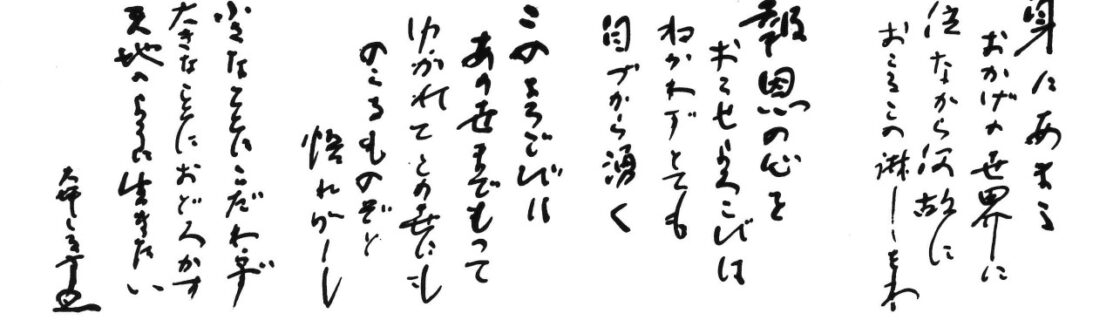 身にあまる
おかげの世界に
住ながら何故に
おこるこの淋しさわ
報恩の心を
おこせよろこびは
ねがわずとても
自づから湧く
このよろこびは
あの世までもって
ゆかれてこの世にも
のこるものぞと
悟れかし
小さなことにこだわらず
大きなことにおどろかず
天地のように生きたい
大坪